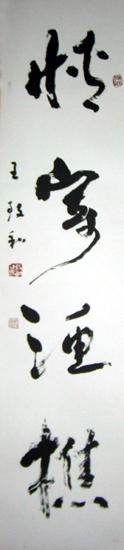 情寄渔樵
王